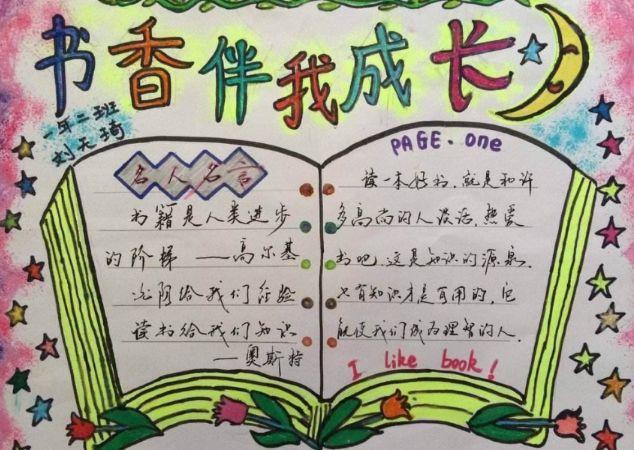 书香伴我成长
一年二班
刘天琦
名人名言
书籍是人类进步
的阶梯——高尔基
光阴给我们经验
读书给我们知识
——奥斯特
PAGE. one
读一本好书,就是和许
多高尚的人谈话,热爱
书吧,这是知识的源泉,
只有知识才是有用的,它
能使我们成为理智的人.
I like book!